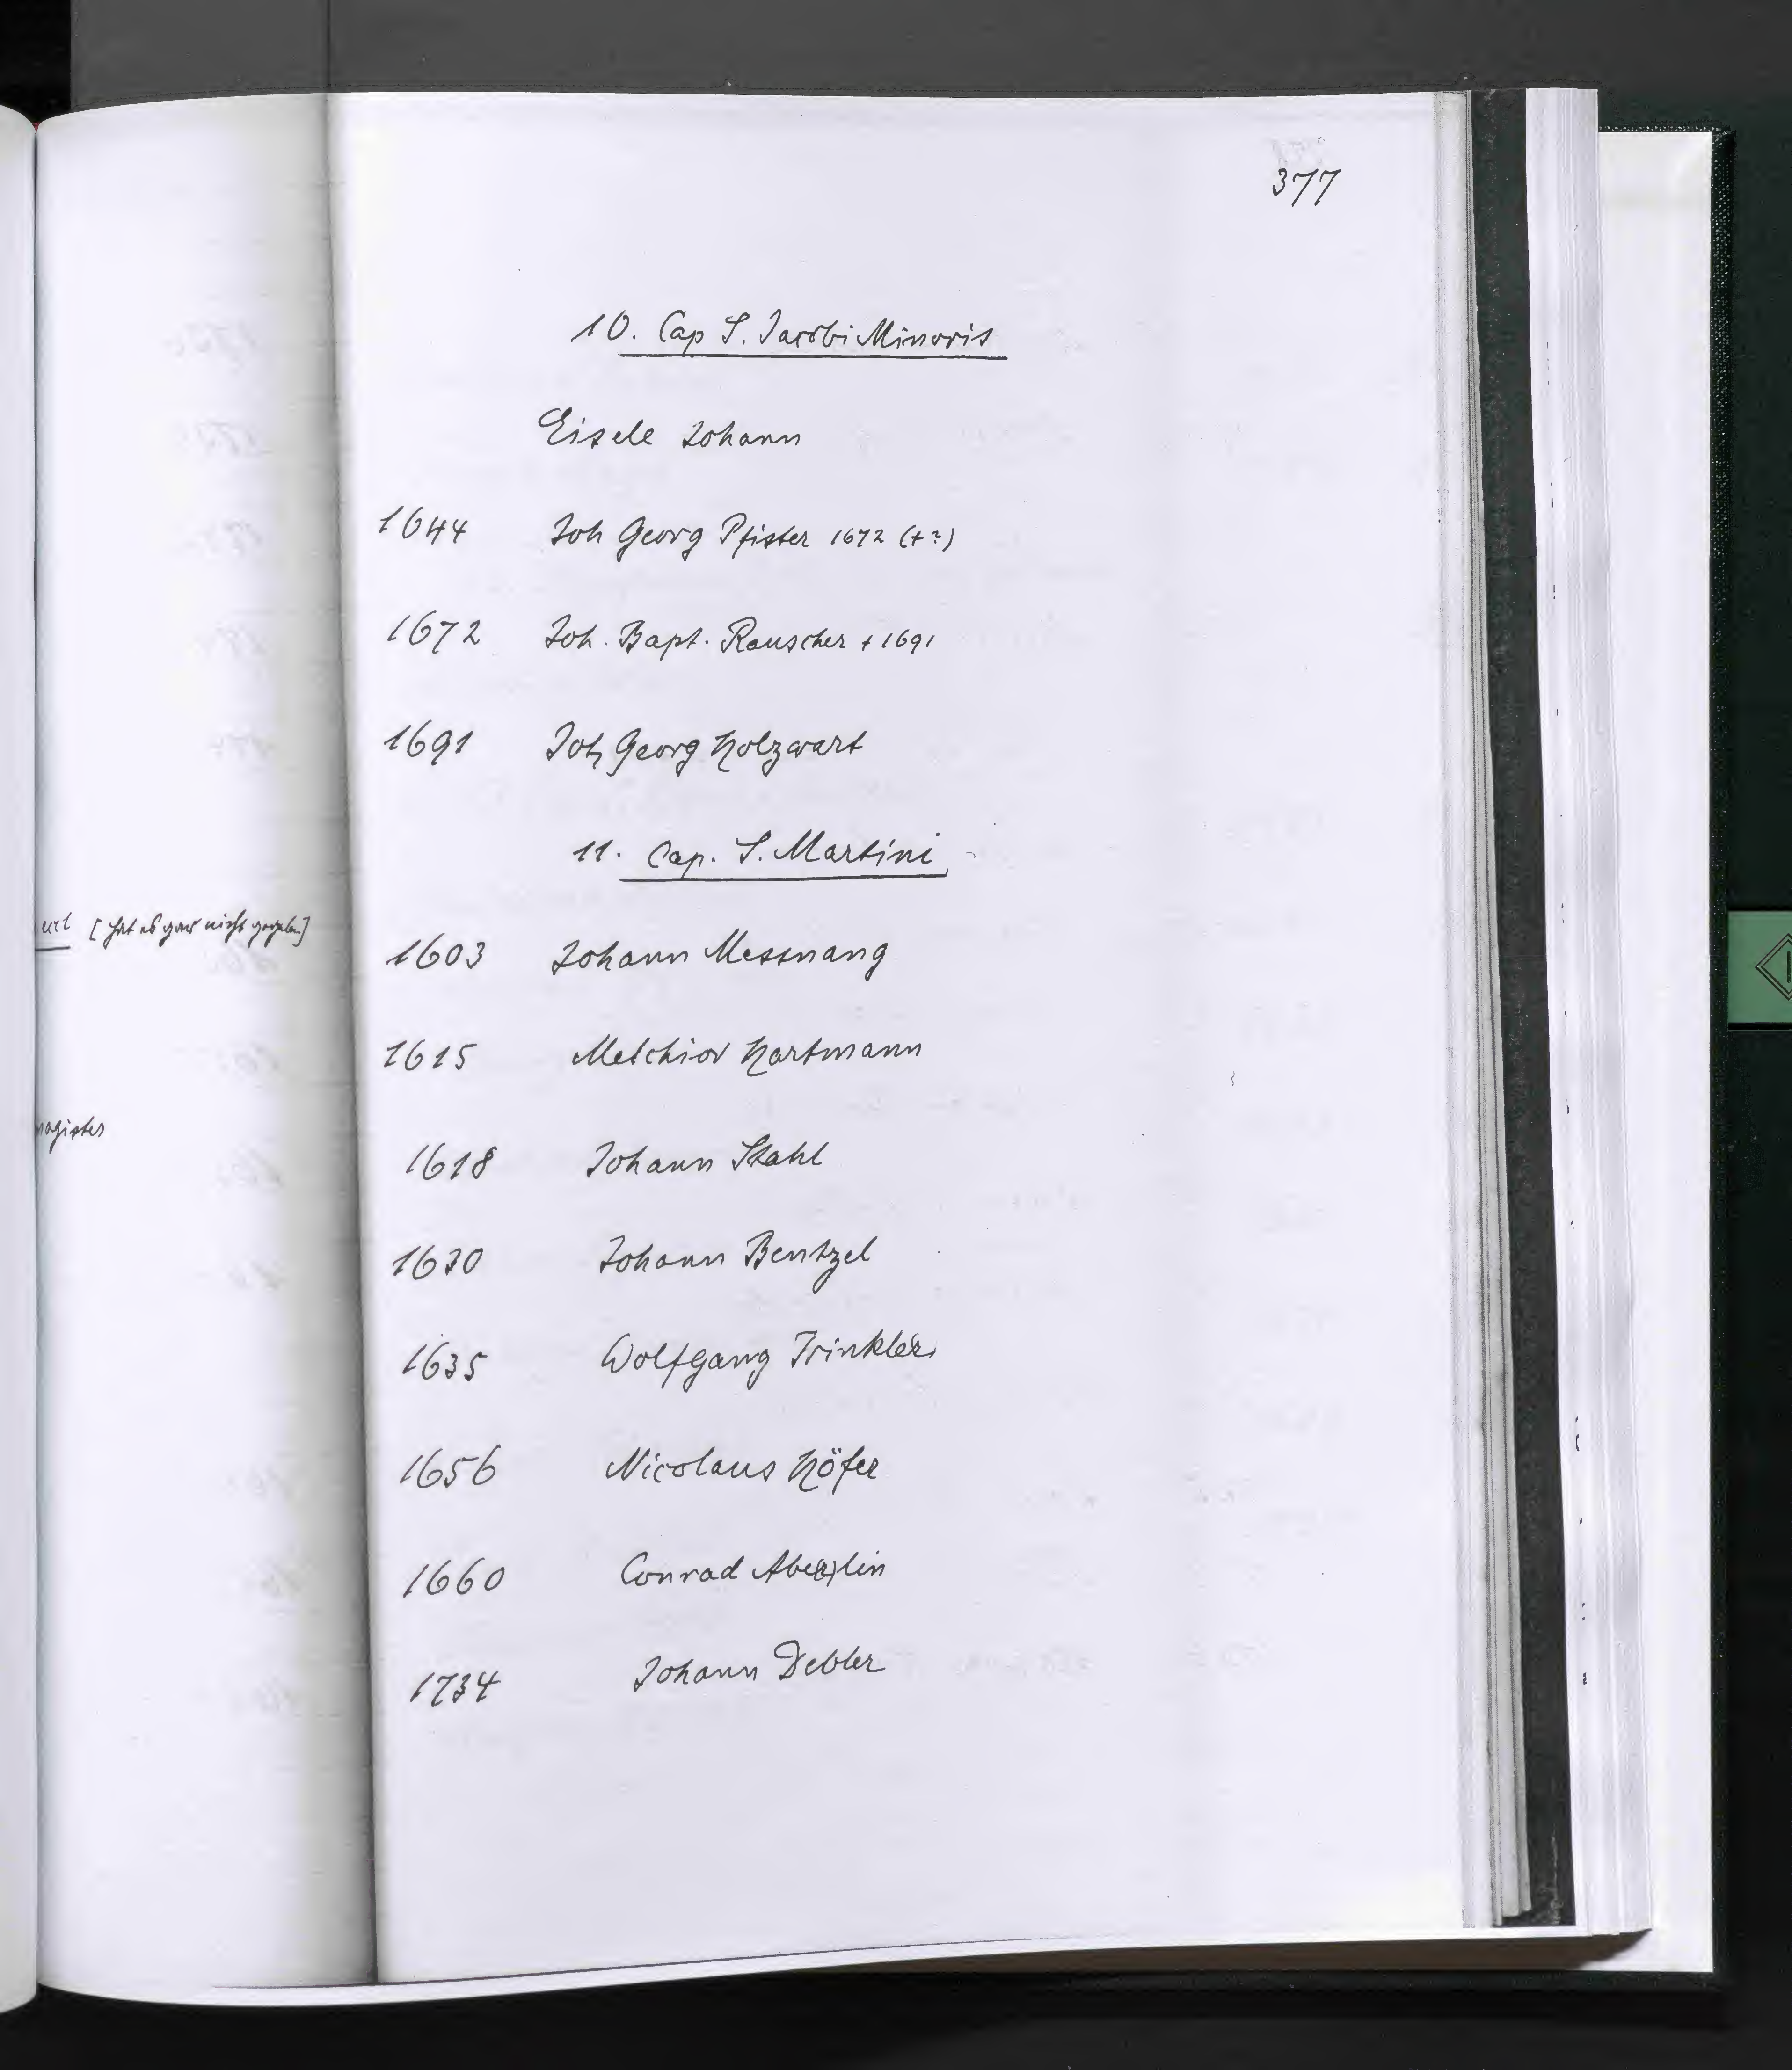 377
10. Cap S. Jacobi Minoris
Eisele Johann
1644 Joh Georg Pfister 1672 (+?)
1672 Joh. Bapt. Rauscher + 1691
1691 Joh Georg Holzwart
11. Cap. S. Martini
[hat es gar nicht gegeben]
1603 Johann Messnang
1615 Melchior Hartmann
magister
1618 Johann Stahl
1630 Johann Bentzel
1635 Wolfgang Trinkler
1656 Nicolaus Höfer
1660 Conrad Abe(r)lin
1734 Johann Debler